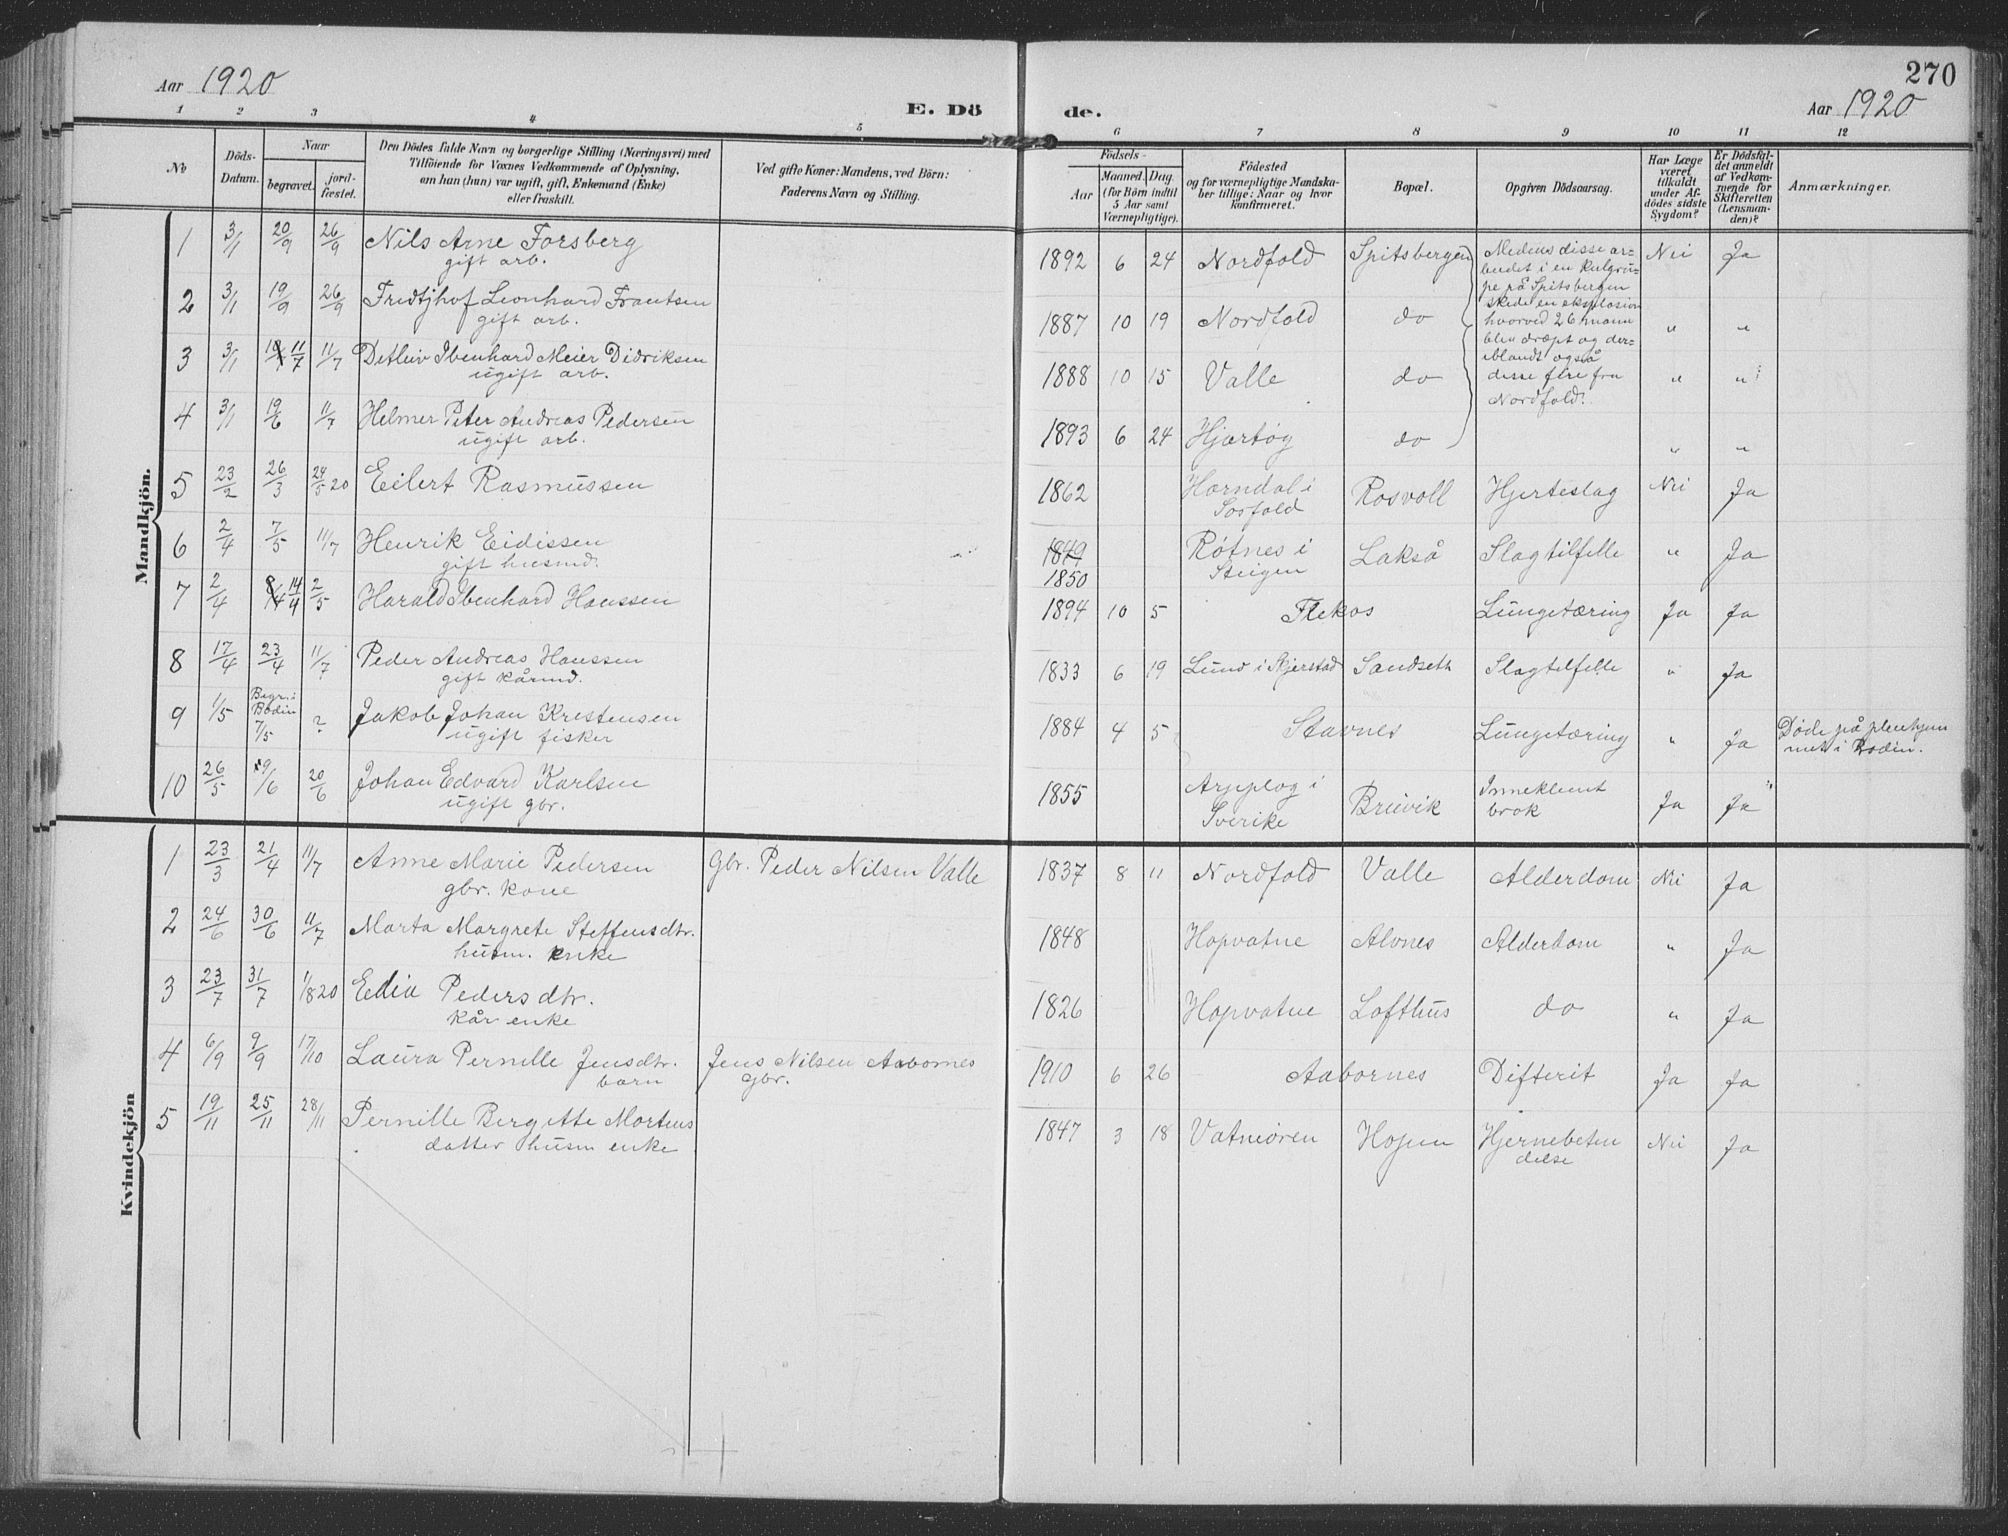 Aar 1920
E. Dö
de.
270
Aar 1920
1 2 3 4 5 6 7 8 9 10 11 12
No
Döds-
Datum.
Naar
begravet.
jord-
fæstet.
Den Dödes fulde Navn og borgerlige Stilling (Næringsvei) med
Tilföiende for Voxnes Vedkommende af Oplysning,
om han (hun) var ugift, gift, Enkemand (Enke)
eller fraskilt.
Ved gifte Koner: Mandens, ved Börn:
Faderens Navn og Stilling.
Födsels-
Aar
Maaned. Dag.
(for Börn indtil
5 Aar samt
Værnepligtige).
Födested
og for værnepligtige Mandska-
ber tillige: Naar og hvor
konfirmeret.
Bopæl.
Opgiven Dödsaarsag.
Har Læge
været
tilkaldt
under Af-
dödes sidste
Sygdom?
Er Dödsfal-
det anmeldt
af Vedkom-
mende for
Skifteretten
(Lensman-
den)?
Anmærkninger.
Mandkjön.
1 3/1 20/9 26/9 Nils Arne Forsberg 1892 6 24 Nordfold Spitsbergen Nei Ja
gift arb.
Medens disse ar-
beidet i en kulgru-
pe på Spitsbergen
skede en eksplosion
hvorved 26 mann
blev dræpt og der-
iblandt også
disse fire fra
Nordfold.
2 3/1 19/9 26/9 Fridtjhof Leonhard Frantsen 1887 10 19 Nordfold do " "
gift arb.
3 3/1 11/7 11/7 Detlev Ibenhard Meier Didriksen 1888 10 15 Valle do " "
ugift arb.
4 3/1 19/6 11/7 Helmer Peter Andreas Pedersen 1893 6 24 Hjærtøg do " "
ugift arb.
5 23/2 26/3 24/5 20 Eilert Rasmussen 1862 Horndal i Rosvoll Hjerteslag Nei Ja
Sosfold
6 2/4 7/5 11/7 Henrik Eidissen 1849 Røtnes i Lakså Slagtilfelle " Ja
gift husmd. 1850 Steigen
7 2/4 8/4 14/4 2/5 Harald Ibenhard Hanssen 1894 10 5 Flekos Lungetæring Ja Ja
8 17/4 23/4 11/7 Peder Andreas Hanssen 1833 6 19 Lund i Skjerstad Sandseth Slagtilfelle " Ja
gift kårmd.
9 1/5 Begr. i Bodin 7/5 ? Jakob Johan Kristensen 1884 4 5 Stavnes Lungetæring " Ja Døde på pleiehjem
ugift fisker met i Bodin.
10 26/5 9/6 20/6 Johan Edvard Karlsen 1855 Arpplog i Bruvik Inneklemt Ja Ja
ugift gbr. Sverike brok
Kvindekjön
1 23/3 21/4 11/7 Anne Marie Pedersen Gbr. Peder Nilsen Valle 1837 8 11 Nordfold Valle Alderdom Nei Ja
gbr. kone
2 24/6 30/6 11/7 Marta Margrete Steffensdtr. 1848 Hopvatne Alvnes Alderdom " Ja
husm. enke
3 23/7 31/7 1/8 20 Edia Pedersdtr. 1826 Hopvatne Lofthus do " Ja
kår enke
4 6/9 9/9 17/10 Laura Pernille Jensdtr. Jens Nilsen Aabornes 1910 6 26 Aabornes Difterit Ja Ja
barn gbr.
5 19/11 25/11 28/11 Pernille Bergitte Mortens 1847 3 18 Vatneøren Hopen Hjernebeten Nei Ja
datter husm enke delse